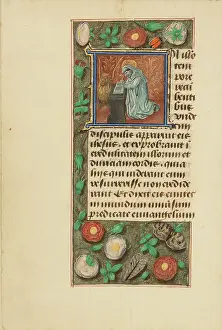 N illo
tem
pore
recū
benti
bus
vnde
cim
discipulis apparuit eis
ihesus et exprobrauit i
credulitatem illorum et
duriciam cordis quia
hiis qui viderant eum
resurrexisse non credide
rant Et dixit eis euntes
in mundum vniuersum
predicate euuangelium